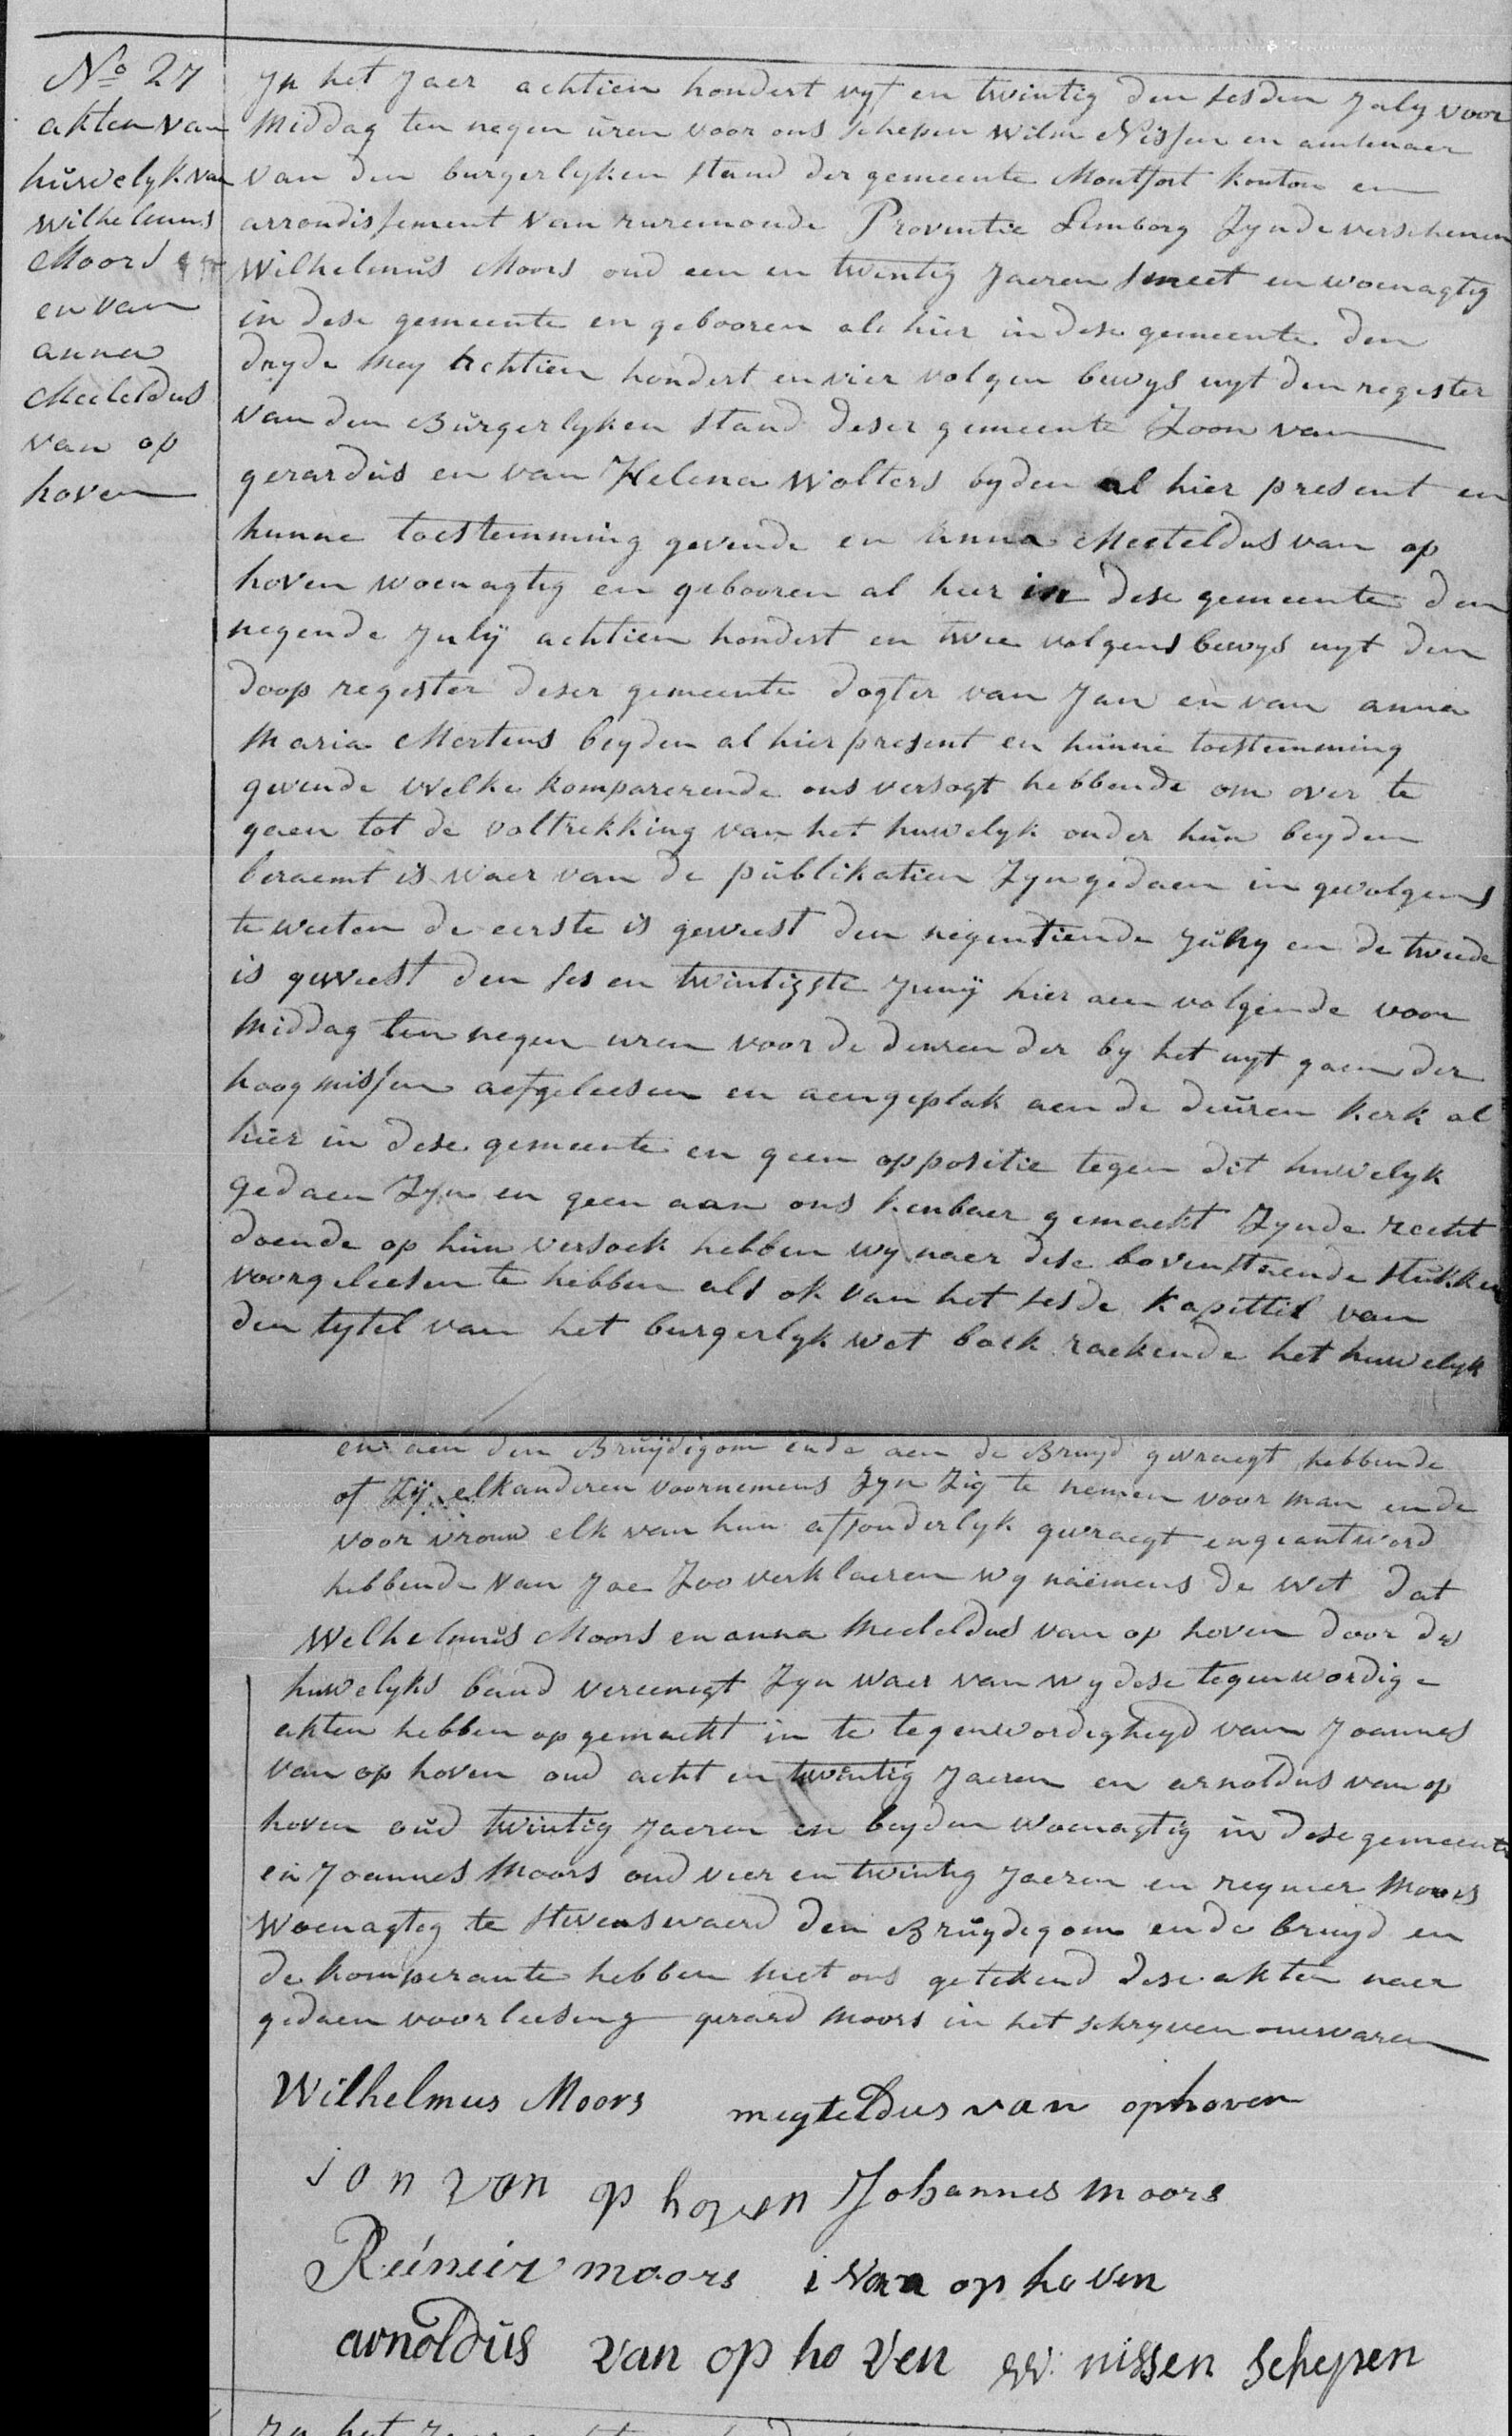 No 27
akten van
huwelyk van
wilhelmus
Moors en
en van
anna
Mecteldus
van op
hoven
Jn het Jaer achtien hondert vyf en twintig den sesden July voor
Middag ten negen uren voor ons schepen Wilm Nissen en amtenaer
van den burgerlyken stand der gemeente Montfort konton en
arrondissement van ruremonde Proventie Limborg Zynde verschenen
Wilhelmus Moors oud een en twintig Jaeren smeet en woenagtig
in dese gemeente en gebooren al hier in dese gemeente den
dryde mey achtien hondert en vier volgen bewys uyt den register
van den Burgerlyken stand deser gemeente Zoon van
gerardus en van Helena Wolters byden al hier present en
hunne toestemming gevende en anna Mecteldus van op
hoven woenagtig en gebooren al hier in dese gemeente den
negende July achtien hondert en twee volgens bewys uyt den
doop register deser gemeente dogter van Jan en van anna
Maria Mertens beyden al hier present en hunne toestemming
gevende welke komparerende ons versogt hebbende om over te
gaen tot de voltrekking van het huwelyk onder hun beyden
beraemt is waer van de publikatien Zyn gedaen in gevolgens
te weeten de eerste is geweest den negentiende July en de tweede
is geweest den ses en twintigste Juny hier aen volgende voor
Middag ten negen uren voor de deuren der by het uyt gaen der
hoog missen aefgeleesen en aengeplak aen de deuren kerk al
hier in dese gemeente en geen oppositie tegen dit huwelyk
gedaen Zyn en geen aan ons kenbaer gemaekt Zynde recht
doende op hun versoek hebben wy naer dese bovenstaende stukken
voorgeleesen te hebben als ok van het sesde kapittel van
den tytel van het burgerlyk wet boek raekende het huwelyk
en aen den Bruydigom ende aen de Bruyd gevraegt hebbende
of Zy elkanderen voornemens Zyn Zig te nemen voor man ende
voor vrouw elk van hun afsonderlyk gevraegt en geantword
hebbende van Jae Zoo verklaeren wy naemens de wet dat
Welhelmus Moors en anna Mecteldus van op hoven door de
huwelyks band vereenigt Zyn waer van wy dese tegenwordige
akten hebben op gemaekt in te tegenwordigheyd van Joannes
van op hoven oud acht en twintig Jaeren en arnoldus van op
hoven oud twintig Jaeren en beyden woenagtig in dese gemeente
en Joannes Moors oud vier en twintig Jaeren en reymer Moors
Woenagteg te stevenswaerd den Bruydegom ende bruyd en
de komperante hebben met ons getekend dese akten naer
gedaen voorleesing gerard Moors in het schryven onervaren
Wilhelmus Moors megteldus van ophoven
jon van op hoven Johannes moors
Reinier moors i van op hoven
arnoldus van op hoven W: nissen schepen